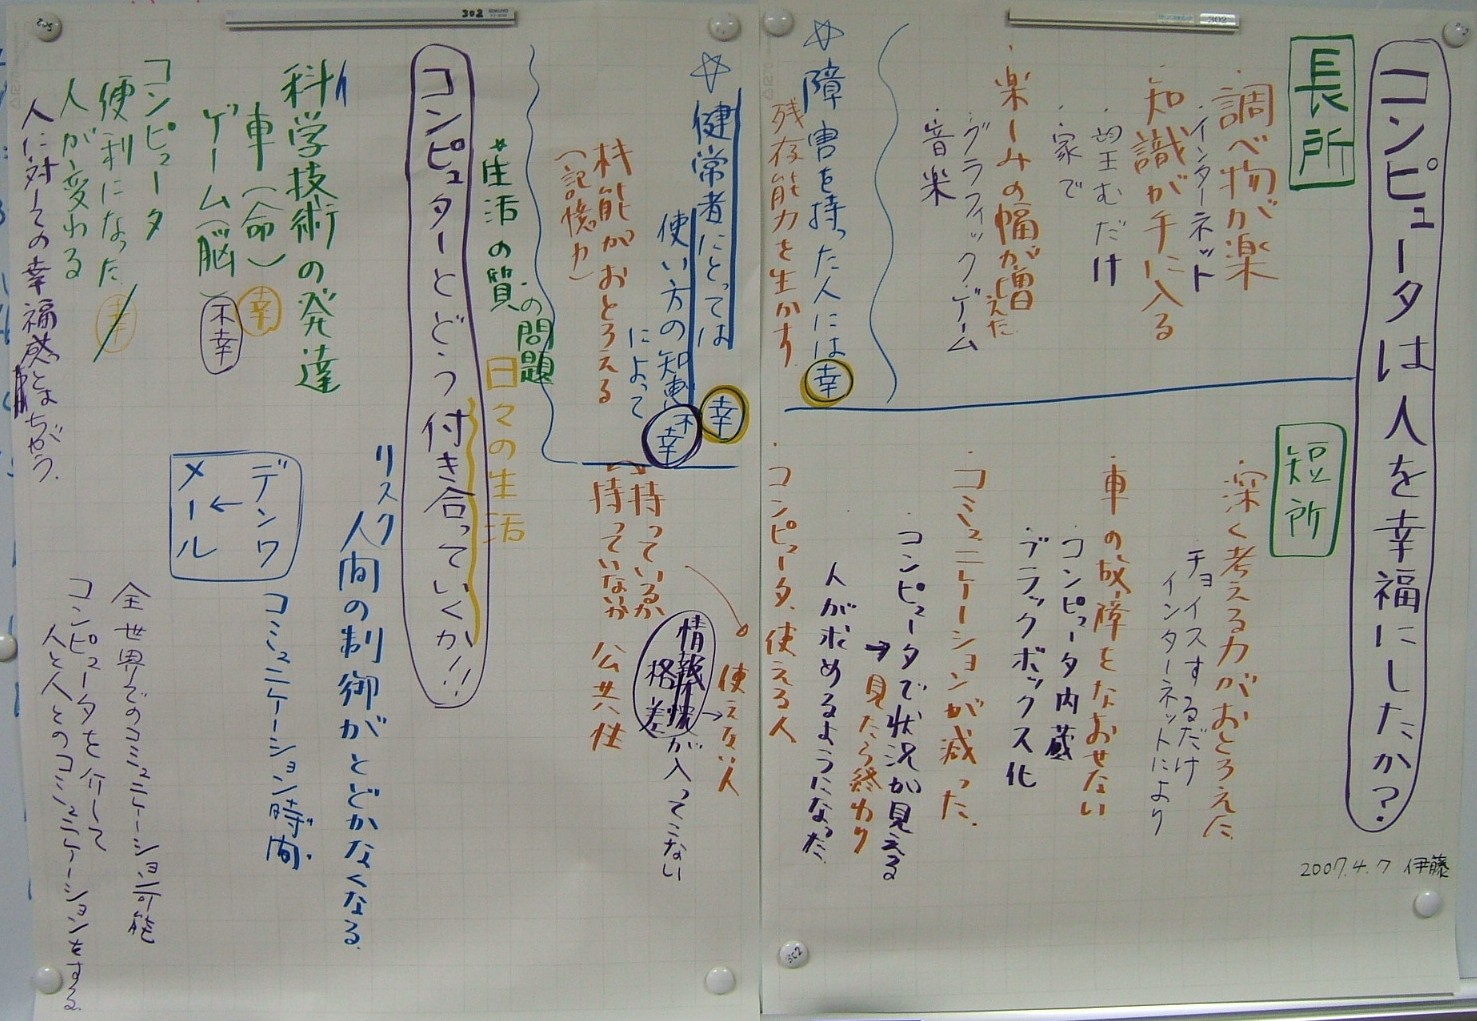 コンピュータは人を幸福にしたか？
2007.4.7 伊藤
長所
・調べ物が楽
インターネット
・知識が手に入る
・家で
・楽しみの幅が増えた
・グラフィックゲーム
・音楽
☆障害を持った人には幸
残存能力を生かす
短所
・深く考える力がおとろえた
チョイスするだけ
インターネットにより
・車の故障をなおせない
・コンピュータ内蔵
・ブラックボックス化
・コミュニケーションが減った
・コンピュータで状況が見える
→見たら終わり
人が求めるようになった
・コンピュータ、使える人
使えない人
☆健常者にとっては幸
使い方の知恵
によって
不幸
機能がおとろえる
（記憶力）
情報が入ってこない
情報格差
持っているか
持っていないか
公共性
生活の質の問題
日々の生活
コンピューターとどう付き合っていくか!!
科学技術の発達
車（命）幸
ゲーム（脳）不幸
コンピュータ
便利になった 幸
人が変わる
人に対しての幸福感とまちがう。
リスク
人間の制御がとどかなくなる。
デンワ
←
メール
コミュニケーション時間。
全世界でのコミュニケーション可能
コンピュータを介して
人と人とのコミュニケーションをする。